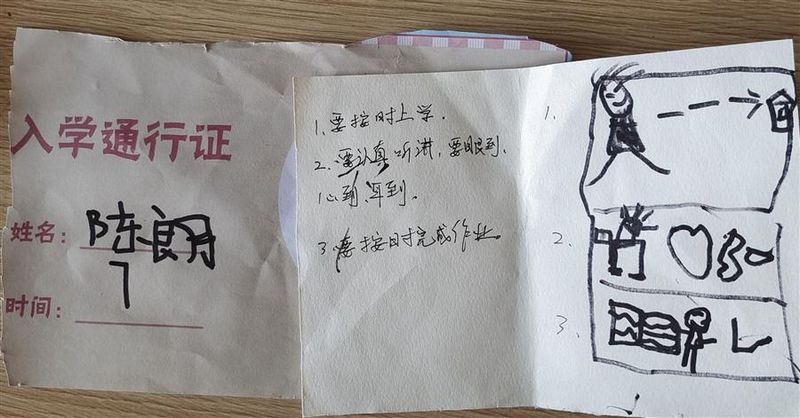 入学通行证
姓名：陈朗
7
时间：
1、要按时上学.
2、要认真听讲，要眼到、
心到、耳到。
3、要按时完成作业。
1、
2、
3、